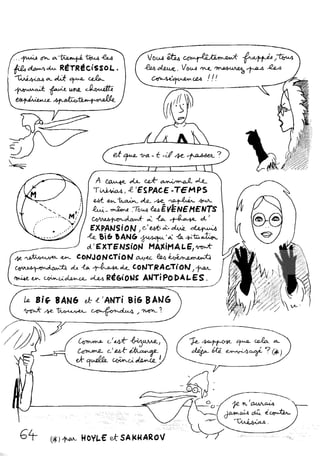 ...puis on a trempé tous les
fils dans du RÉTRÉCISSOL.
Tirésias a dit que cela
pourrait faire une chouette
expérience spatiotemporelle
Vous êtes complètement frappés, tous
les deux. Vous ne mesurez pas les
conséquences !!!
et que va-t-il se passer ?
A cause de cet animal de
Tirésias, l'ESPACE-TEMPS
est en train de se replier sur
lui-même. Tous les ÉVÈNEMENTS
correspondant à la phase d'
EXPANSION, c'est-à-dire depuis
le BIG BANG jusqu'à la situation
d'EXTENSION MAXIMALE, vont
se retrouver en CONJONCTION avec les évènements
correspondants de la phase de CONTRACTION, par
mise en coïncidence des RÉGIONS ANTIPODALES.
M
M'
Le BIG BANG et l'ANTI BIG BANG
vont se trouver confondus, non ?
Comme c'est bizarre,
comme c'est étrange
et quelle coïncidence !
Je suppose que cela a
déjà été envisagé ? (*)
Je n'aurais
jamais dû écouter
Tirésias.
64
(*) par HOYLE et SAKHAROV